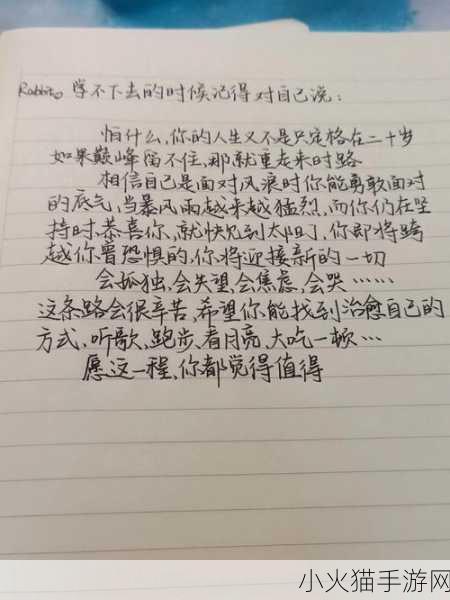 Rabbit。学不下去的时候记得对自己说：
怕什么，你的人生又不是只定格在二十岁
如果巅峰留不住，那就重走来时路
相信自己是面对风浪时你能勇敢面对
的底气，当暴风雨越来越猛烈，而你仍在坚
持时恭喜你，就快见到太阳了，你即将跨
越你曾恐惧的，你将迎接新的一切
会孤独，会失望，会焦虑，会哭……
这条路会很辛苦，希望你能找到治愈自己的
方式，听歌、跑步、看月亮、大吃一顿…
愿这一程，你都觉得值得
小火猫手游网